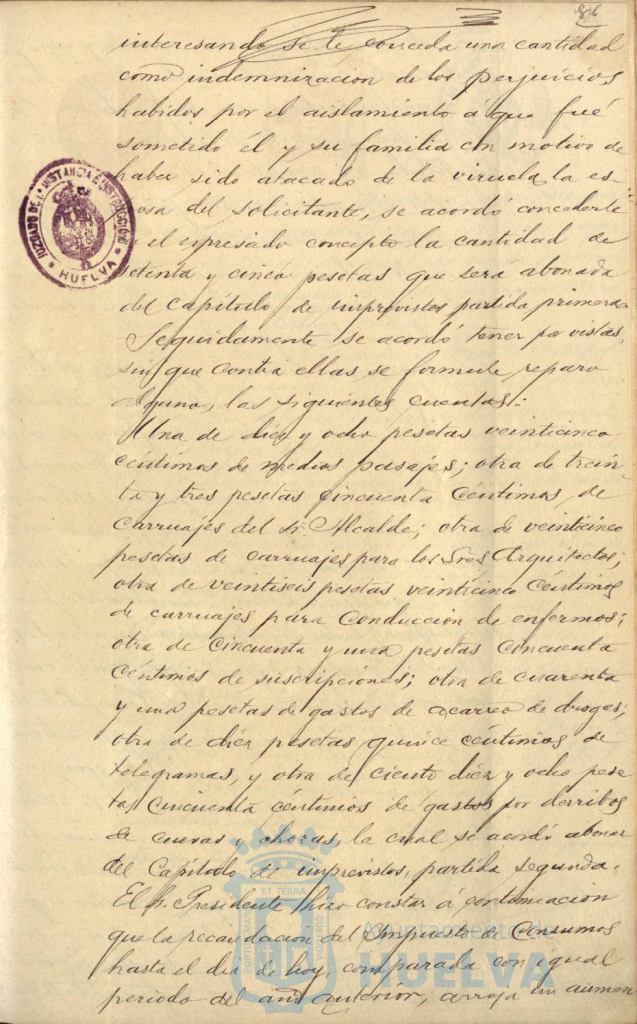 86
interesando se le conceda una cantidad
como indemnizacion de los perjuicios
habidos por el aislamiento á que fué
sometido él y su familia con motivo de
haber sido atacado de la viruela la es-
posa del solicitante, se acordó concederle
el espresado concepto la cantidad de
setenta y cinco pesetas que sera abonada
del Capítulo de imprevistos partida primera.
Seguidamente se acordó tener por vistas,
sin que contra ellas se formule reparo
alguno, las siguientes cuentas:
Una de diez y ocho pesetas veinticinco
céntimos de medios pasajes; otra de trein-
ta y tres pesetas cincuenta céntimos de
carruajes del Sr. Alcalde; otra de veinticinco
pesetas de carruajes para los Sres Arquitectos;
otra de veintiseis pesetas veinticinco céntimos
de carruajes para conducción de enfermos;
otra de cincuenta y una pesetas cincuenta
céntimos de suscripciones; otra de cuarenta
y una pesetas de gastos de acarreo de drogas;
otra de diez pesetas quince céntimos de
telegramas, y otra de ciento diez y ocho pese
tas cincuenta céntimos de gastos por derribos
de cuevas y chozas, la cual se acordó abonar
del Capítulo de imprevistos, partida segunda.
El Sr. Presidente hizo constar á continuacion
que la recaudacion del Impuesto de Consumos
hasta el dia de hoy, comparada con igual
periodo del año anterior, arroja un aumen
JUZGADO DE 1ª INSTANCIA É INSTRUCCIÓN
* HUELVA *
PORTUS MARIS ET TERRAE CUSTODIA
Ayuntamiento de
HUELVA